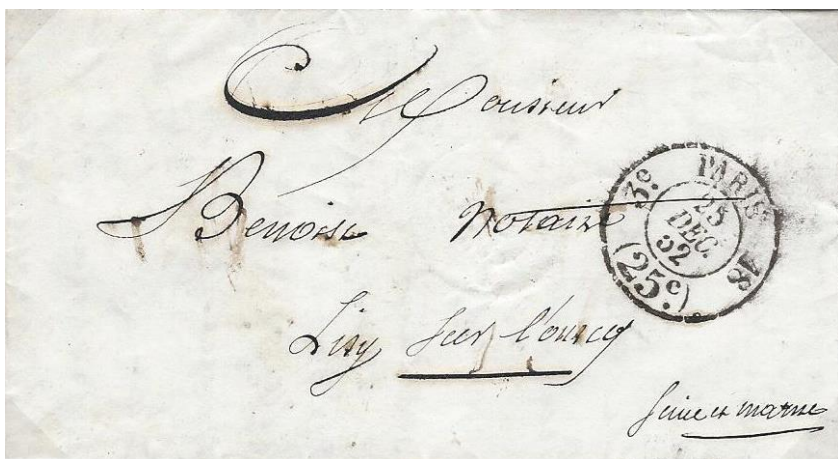 Monsieur
Benoist notaire
Lizy sur l'ourcq
Seine et marne
3e PARIS 18
25
DEC.
52
(25c)